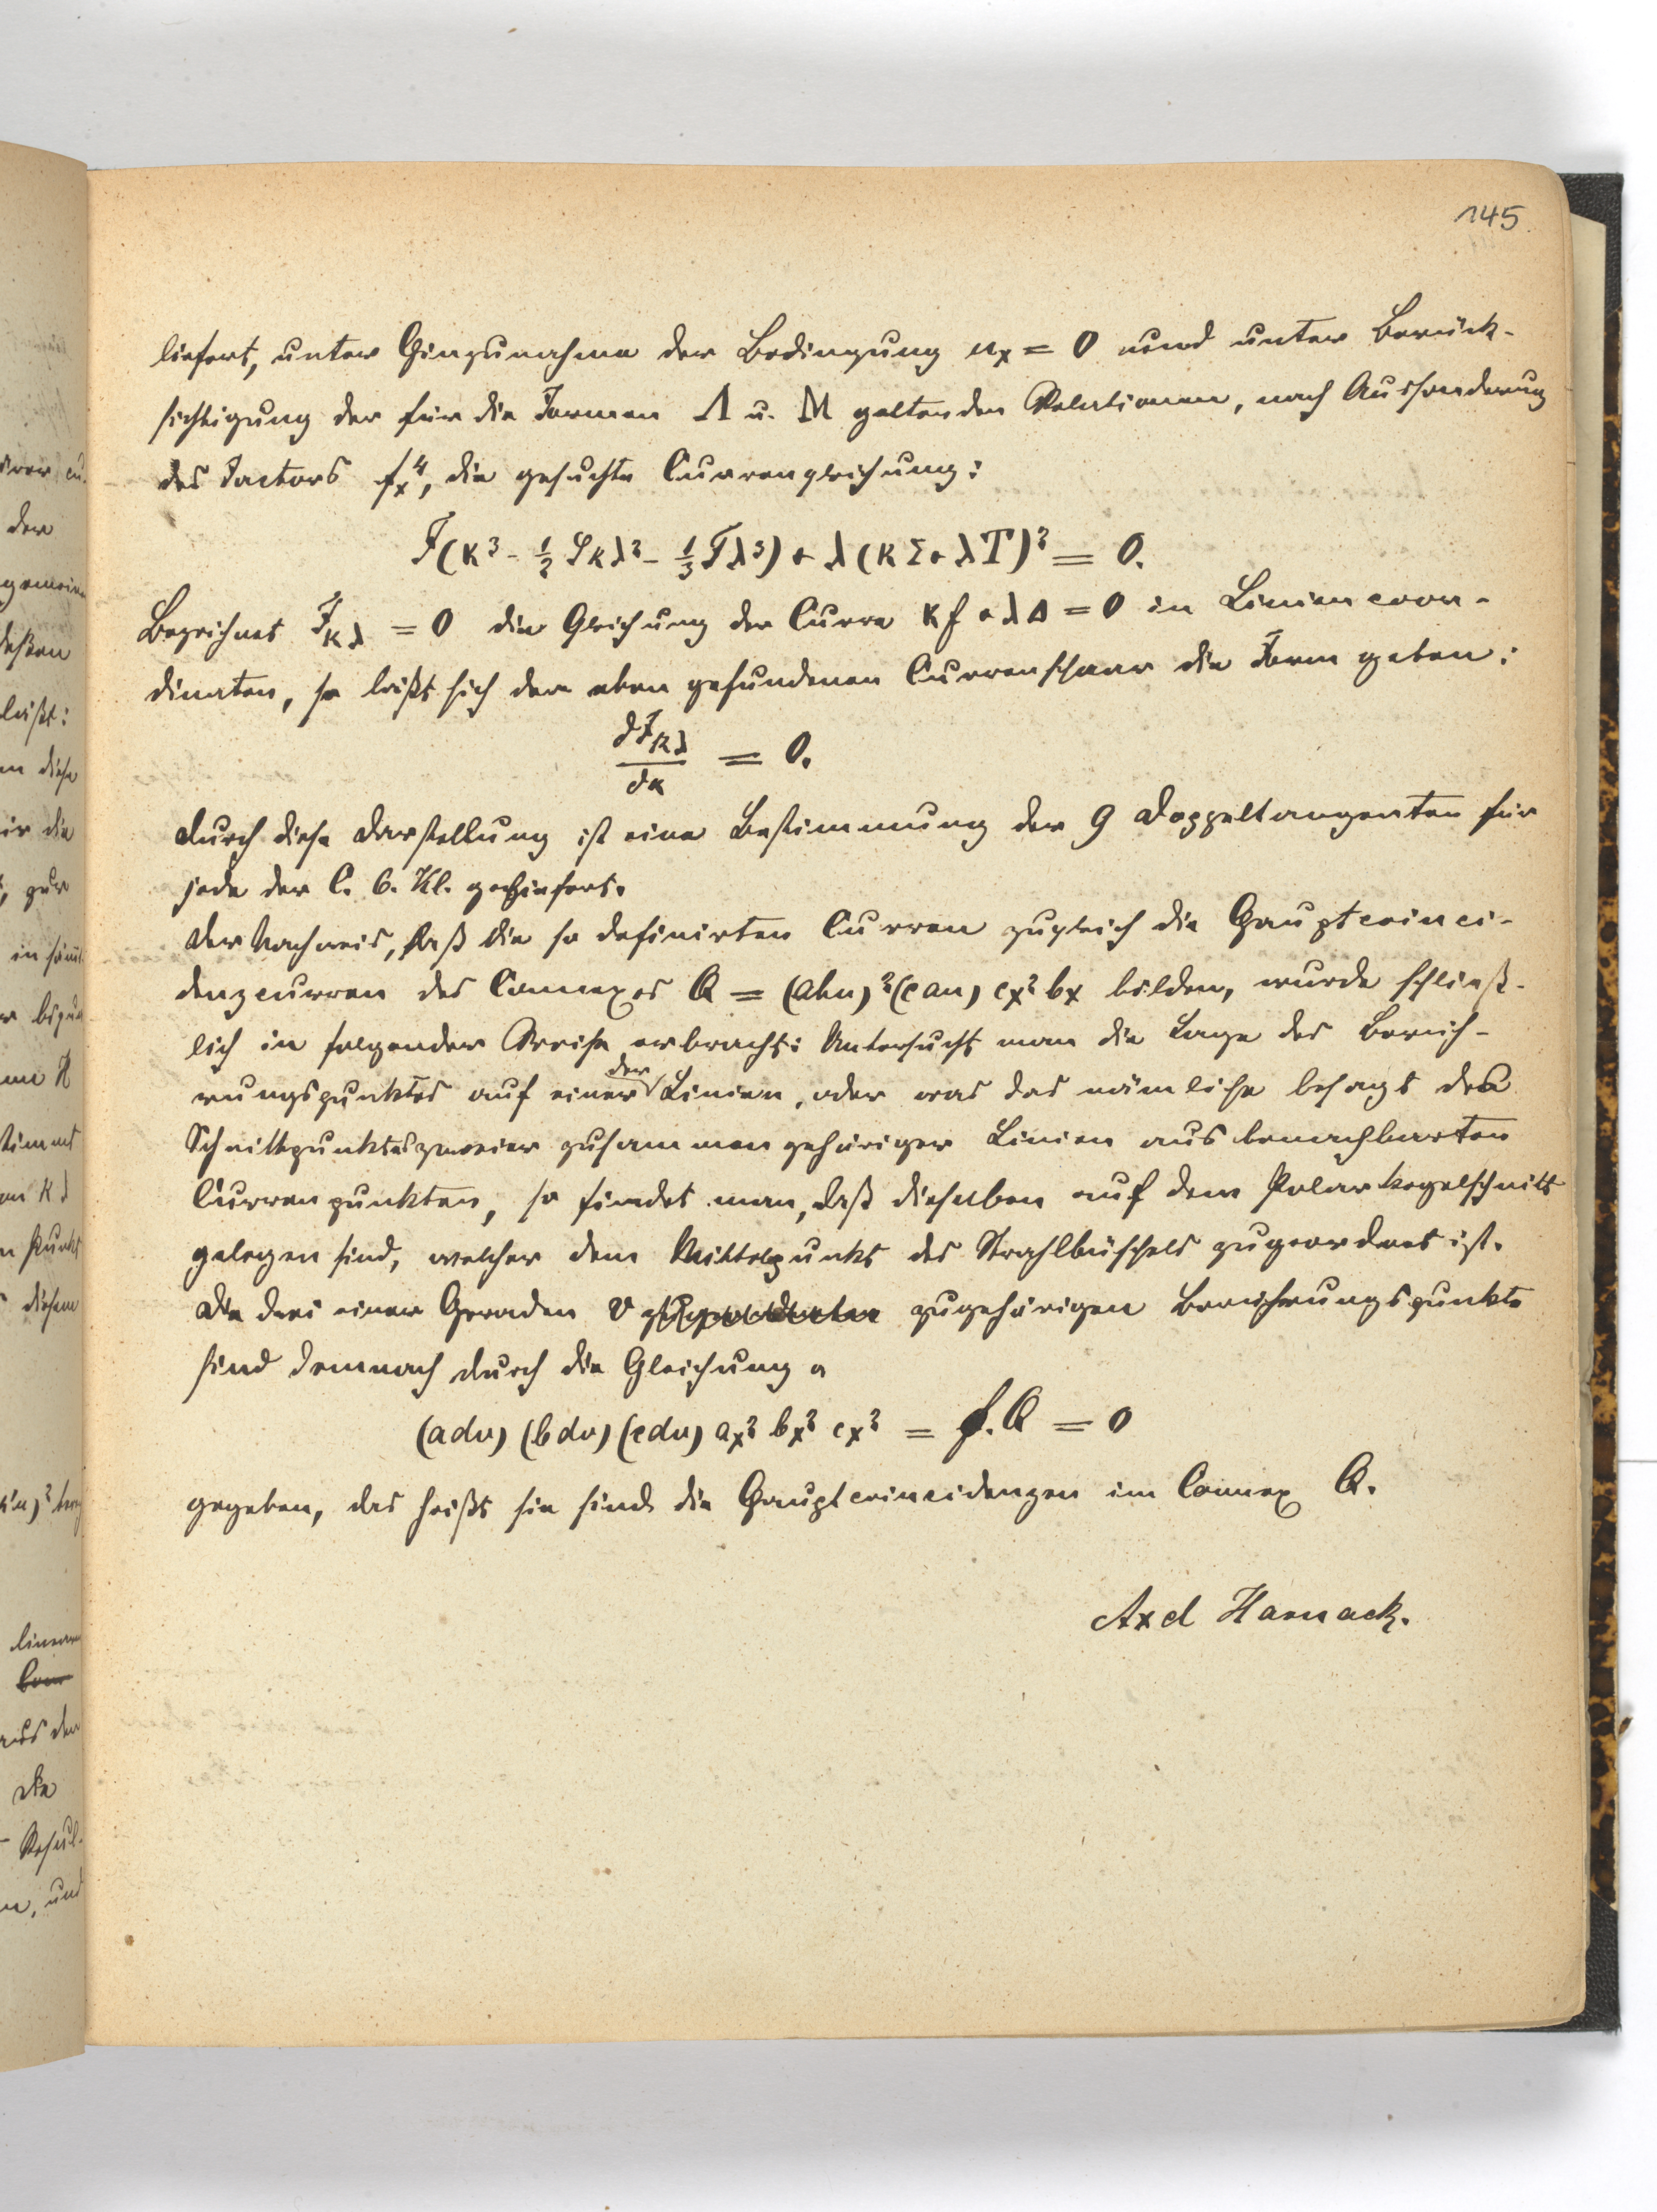 145.
liefert, unter Hinzunahme der Bedingung uₓ = 0 und unter Berück-
sichtigung der für die Formen Λ u. M geltenden Relationen, nach Aussonderung
des Factors fₓ⁴, die gesuchte Curvengleichung:
F(κ³ - ½ S κλ² - ⅓ T λ³) + λ(κΣ + λT)² = 0.
Bezeichnet F_κλ = 0 die Gleichung der Curve κf + λΔ = 0 in Liniencoor-
dinaten, so läßt sich der eben gefundenen Curvenschaar die Form geben:
dF_κλ / dκ = 0.
Durch diese Darstellung ist eine Bestimmung der 9 Doppeltangenten für
jede der C. 6. Kl. geliefert.
Der Nachweis, daß die so definirten Curven zugleich die Hauptcoinci-
denzcurven des Connexes Q = (abu)²(cau) cₓ² bₓ bilden, wurde schließ-
lich in folgender Weise erbracht: Untersucht man die Lage des Berüh-
rungspunktes auf einer der Linien, oder was das nämliche besagt des
Schnittpunktes zweier zusammengehöriger Linien aus benachbarten
Curvenpunkten, so findet man, daß dieselben auf dem Polarkegelschnitt
gelegen sind, welcher dem Mittelpunkt des Strahlbüschels zugeordnet ist.
Die drei einer Geraden v zugehörigen Berührungspunkte
sind demnach durch die Gleichung
(adv) (bdv) (cdv) aₓ² bₓ² cₓ² = f. Q = 0
gegeben, das heißt sie sind die Hauptcoincidenzen im Connex Q.
Axel Harnack.
der
gemein
läßt:
diese
die
in
H
κλ
Punkt
diesem
aus der
Die
Resul-
und